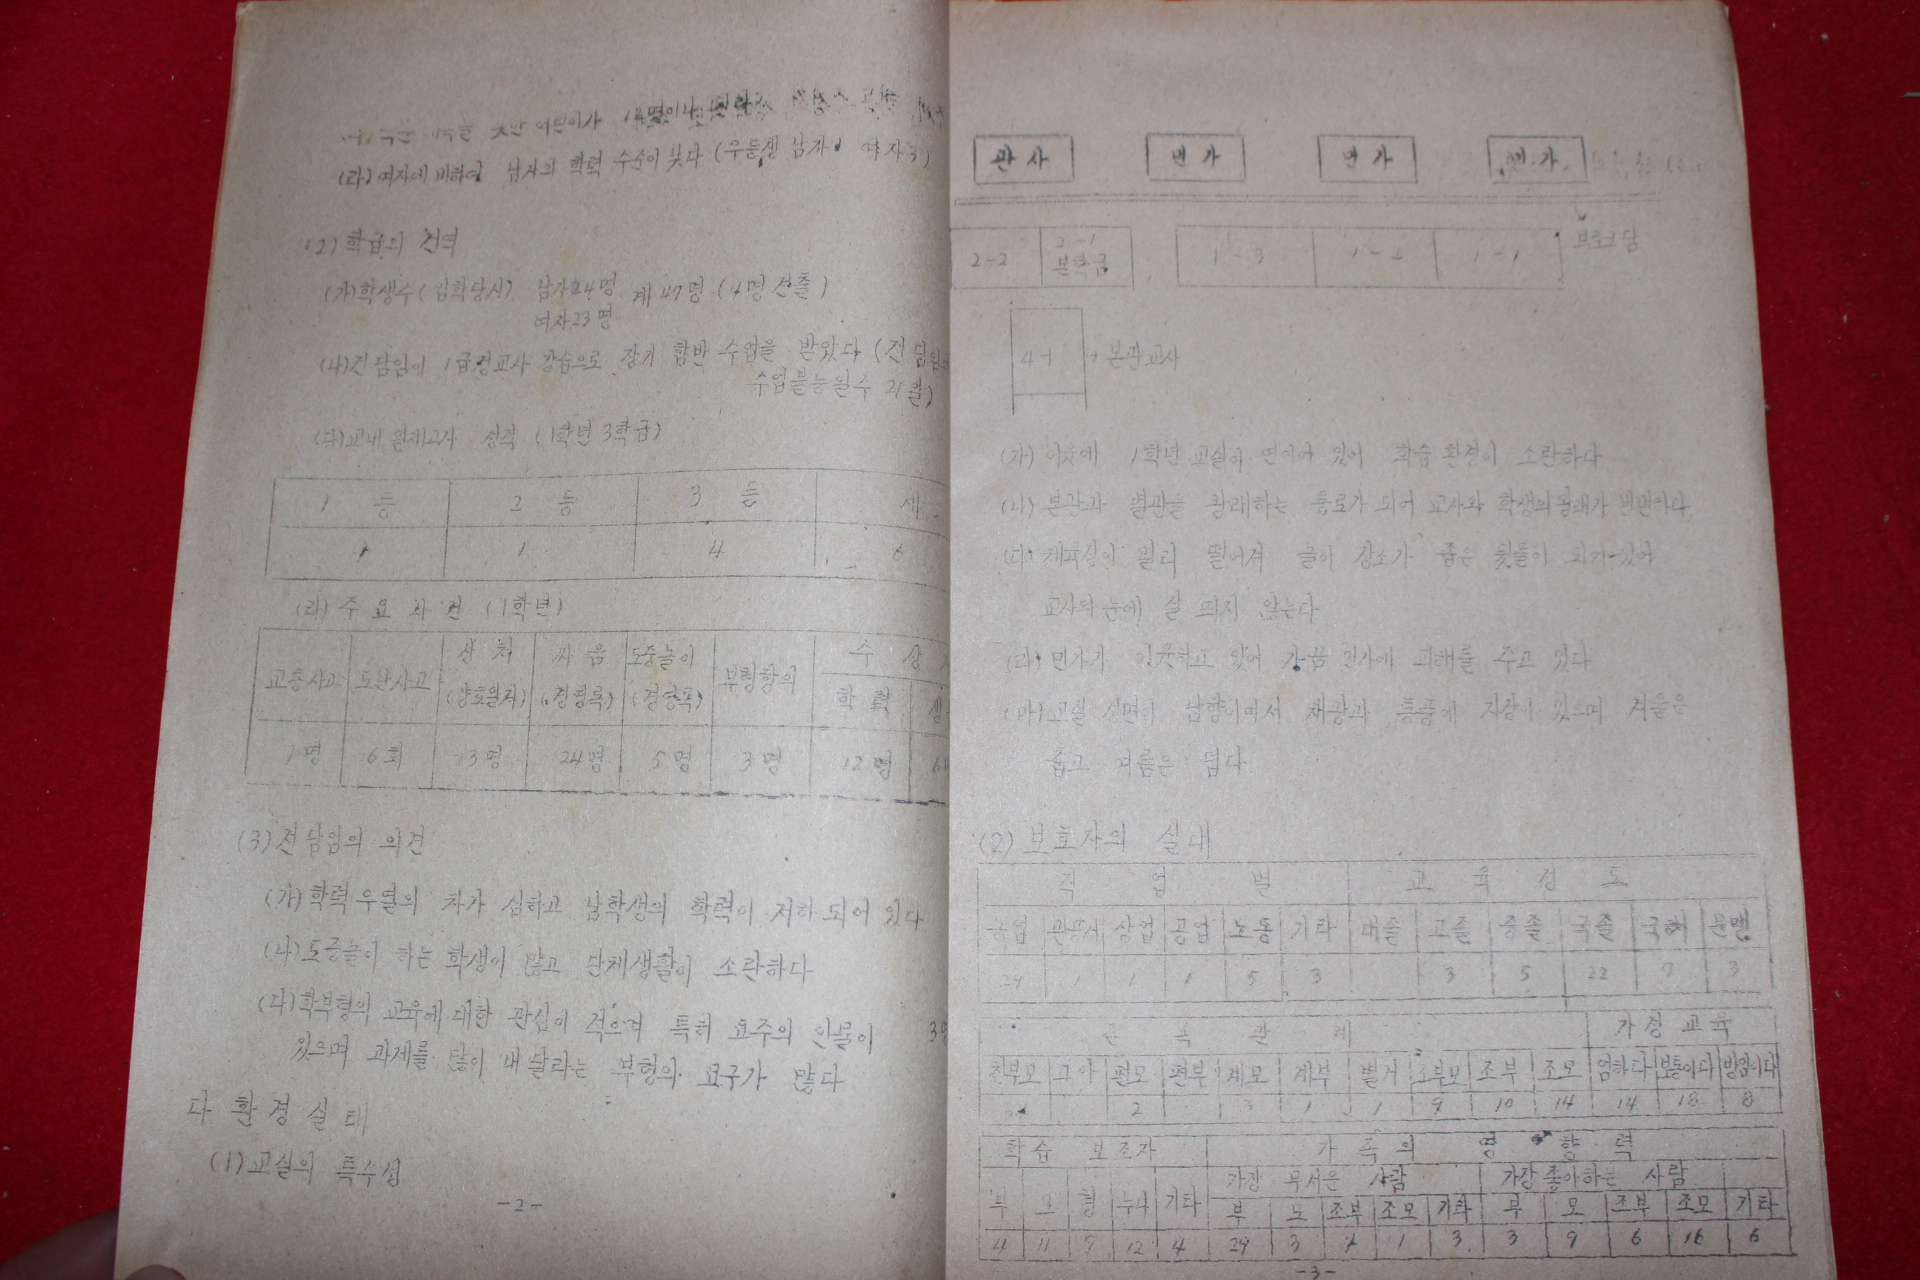 (라) 여자에 비하여 남자의 학력 수준이 낮다 (우등생 남자1 여자3)
(2) 학급의 전력
(가) 학생수 (입학당시) 남자24명 계 47명 (4명 전출)
여자23명
(나) 전담임이 1급정교사 강습으로 장기 합반 수업을 받았다 (전담임의
수업불능일수 21일)
(다) 교내 일제고사 성적 (1학년 3학급)
1 등 2 등 3 등 계
1 1 4 6
(라) 주요사건 (1학년)
교통사고 도난사고 상처 싸움 도중놀이 부형항의 수상자
(양호일지) (경험록) (경험록) 학력
1명 6회 13명 24명 5명 3명 12명
(3) 전담임의 의견
(가) 학력우열의 차가 심하고 남학생의 학력이 저하되어 있다
(나) 도중놀이 하는 학생이 많고 단체생활이 소란하다
(다) 학부형의 교육에 대한 관심이 적으며 특히 요주의 인물이 3명
있으며 과제를 많이 내 달라는 부형의 요구가 많다
다 환경실태
(1) 교실의 특수성
-2-
관사 민가 민가 민가
브로크담
2-2 2-1 1-3 1-2 1-1
본학급
4-1 본관교사
(가) 이웃에 1학년 교실이 연이어 있어 학습환경이 소란하다
(나) 본관과 별관을 왕래하는 통로가 되어 교사와 학생의 왕래가 빈번하다
(다) 체육장이 멀리 떨어져 놀이 장소가 좁은 뒷뜰이 되어 있어
교사의 눈에 잘 띄지 않는다
(라) 민가가 이웃하고 있어 가끔 민가에 피해를 주고 있다
(마) 교실 전면이 남향이어서 채광과 통풍에 지장이 있으며 겨울은
춥고 여름은 덥다
(2) 보호자의 실태
직업별 교육정도
농업 관공서 상업 공업 노동 기타 대졸 고졸 중졸 국졸 국퇴 문맹
29 1 1 1 5 3 3 5 22 7 3
존속관계 가정교육
친부모 고아 편모 편부 계모 계부 별거 조부모 조부 조모 엄하다 보통이다 방임이다
2 3 1 1 9 10 14 14 18 8
학습보조자 가족의 영향력
가장 무서운 사람 가장 좋아하는 사람
부 모 형 누나 기타 부 모 조부 조모 기타 부 모 조부 조모 기타
4 11 9 12 4 29 3 1 1 3 3 9 6 16 6
-3-